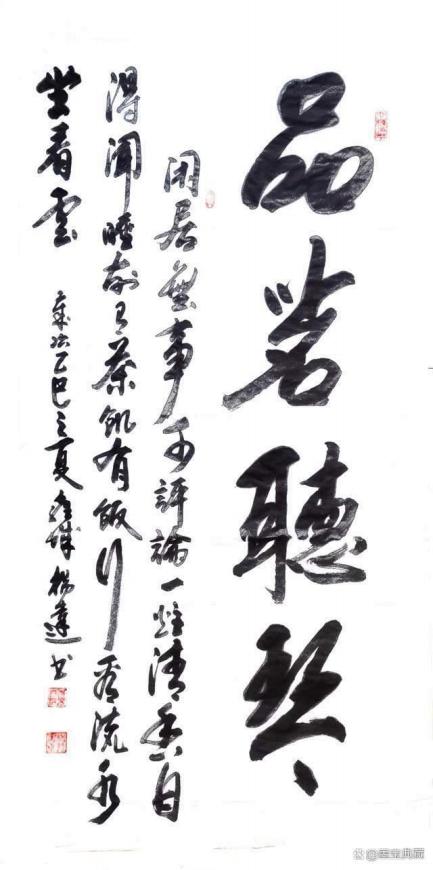 品茗聽琴
闲居無事可評論一炷清香自
得聞睡有茶飢有飯行看流水
坐看雲
歲次乙巳之夏楊達書
@墨宝典藏